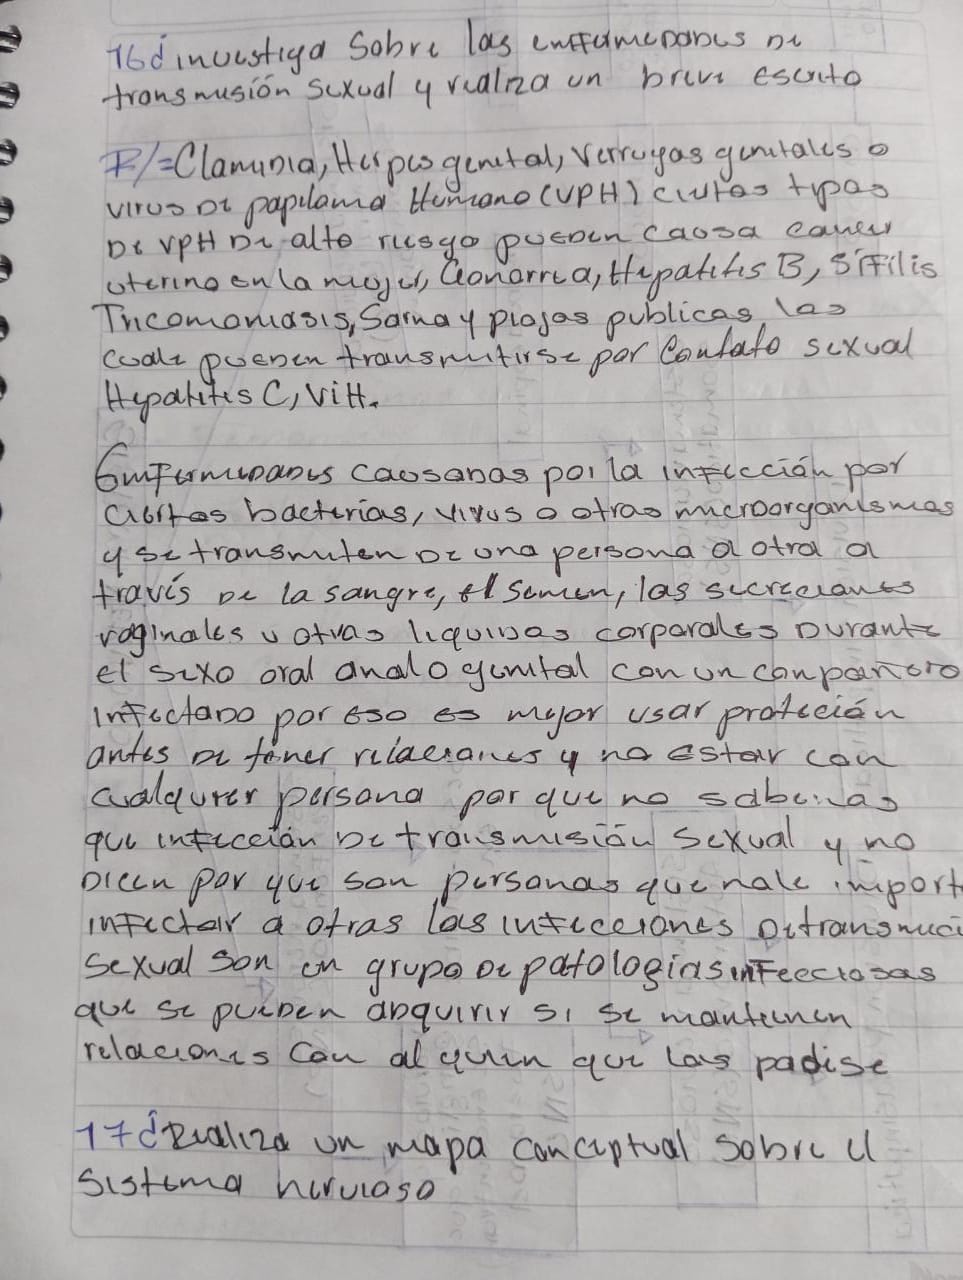 16¿investiga Sobre las enffermedades de
transmusión sexual y realiza un breve escrito
R/=Clamidia, Herpes genital, Verrugas genitales o
virus de papilama Humano (VPH) ciertas tipas
De VPH De alto riesgo pueden causa cancer
uterino en la mujer, Gonorrea, Hepatitis B, Sífilis
Tricomomasis, Sarna y piojas publicas las
cuale pueden transmitirse por Contato sexual
Hepatitis C, ViH.
Emfermedades causadas por la infección por
ciertas bacterias, virus o otras microorganismas
y se transmiten De una persona a otra a
través De la sangre, el semen, las secreciones
vaginales u otras liquidas corporales Durante
el sexo oral anal o genital con un conpañero
infectado por eso es mejor usar protección
antes De tener relaciones y no estar con
cualquier persona por que no sabemas
que infección De transmisión Sexual y no
Dicen por que son personas que nale import
infectar a otras las infecciones De transmuci
Sexual son un grupo De patologias infecciosas
que se pueden adquirir si se mantienen
relaciones Con alguien que las padise
17¿Realiza un mapa conceptual Sobre el
Sistema nervioso